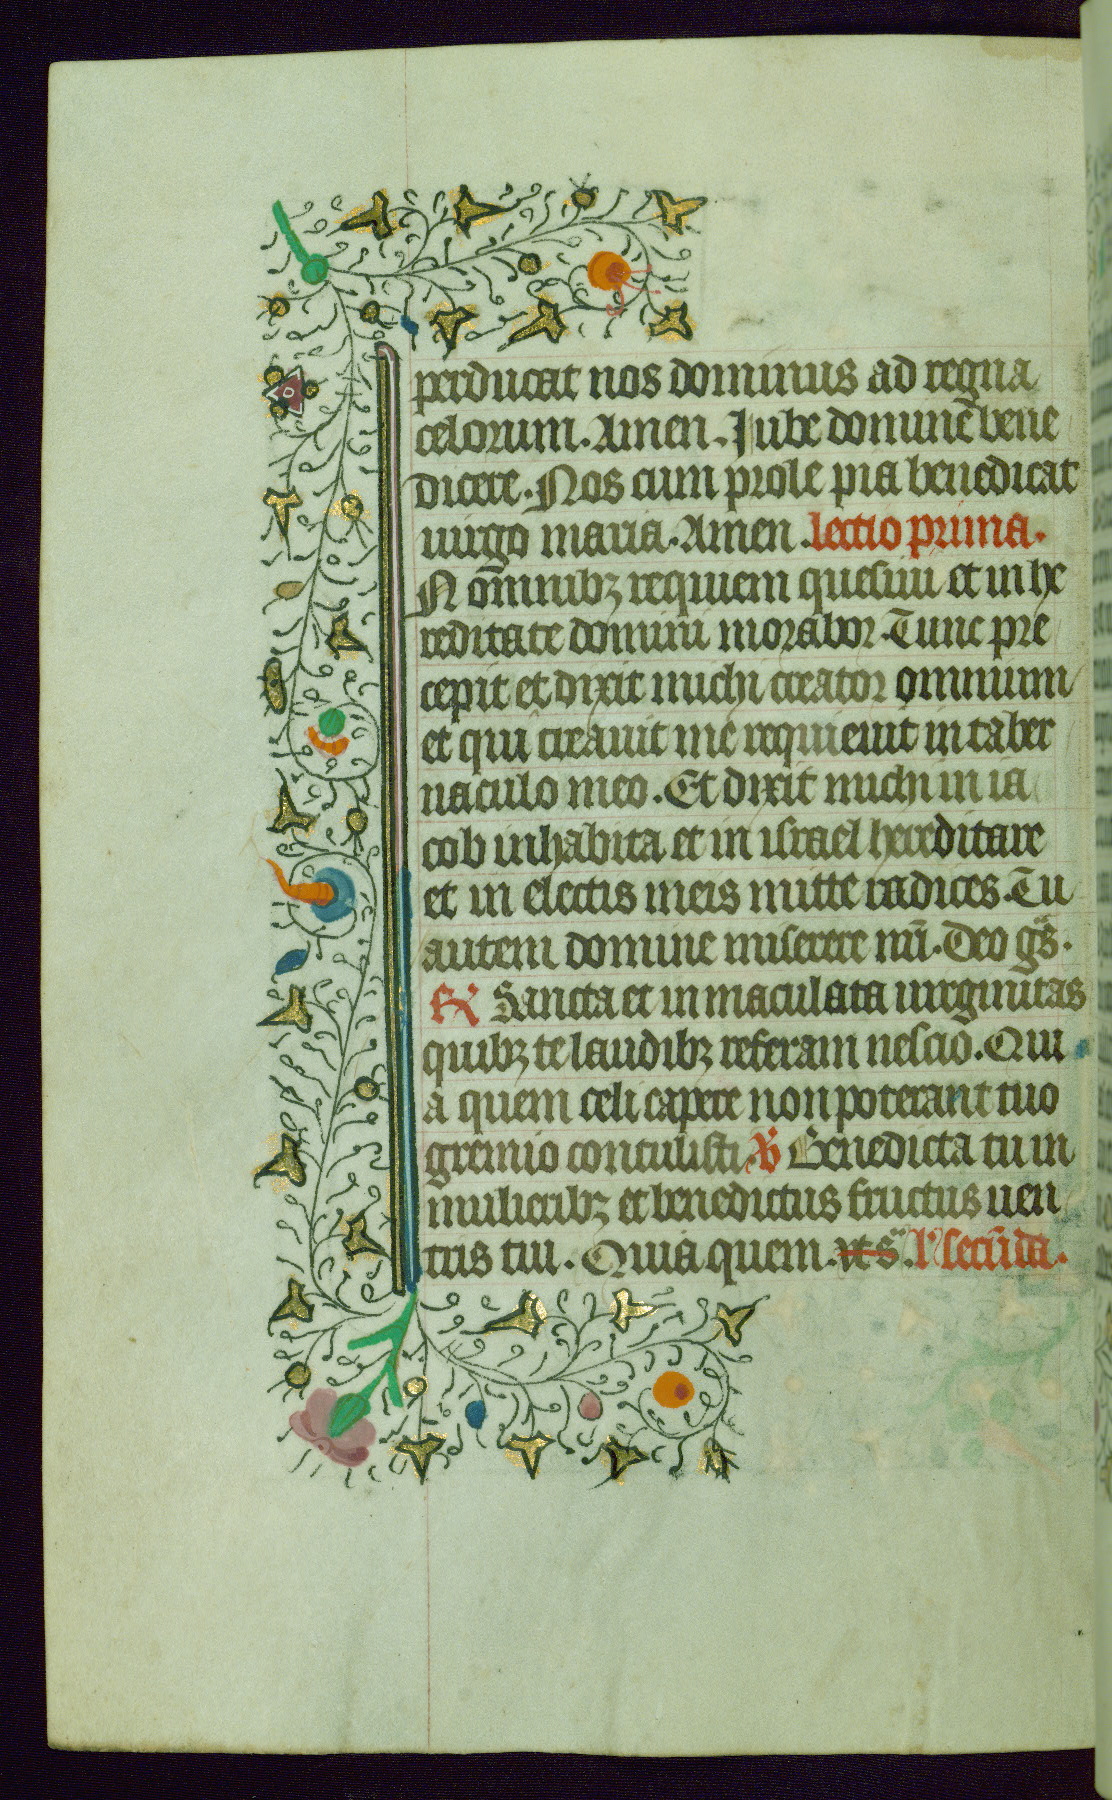 perducat nos dominus ad regna
celorum. Amen. Jube domine bene
dicere. Nos cum prole pia benedicat
uirgo maria. Amen. lectio prima.
N om̄nibꝫ requiem quesiui et in he
reditate domini morabor. Tunc pre
cepit et dixit michi creator omnium
et qui creauit me requieuit in taber
naculo meo. Et dixit michi in ia
cob inhabita et in israel hereditare
et in electis meis mitte radices. Tu
autem domine miserere nr̄i. Deo gr̄s.
℟ Sancta et inmaculata uirginitas
quibꝫ te laudibꝫ referam nescio. Qui
a quem celi capere non poterant tuo
gremio contulisti ℣ Benedicta tu in
mulieribꝫ et benedictus fructus uen
tris tui. Quia quem. ut sᵃ. lᵒ secūda.